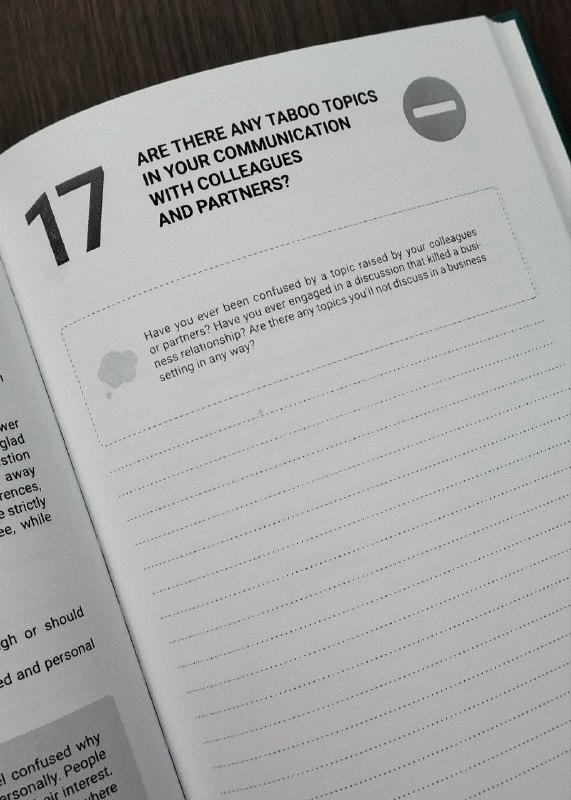 wer
glad
stion
away
rences,
e strictly
ee, while
gh or should
ed and personal
el confused why
ersonally. People
eir interest.
where
17
ARE THERE ANY TABOO TOPICS
IN YOUR COMMUNICATION
WITH COLLEAGUES
AND PARTNERS?
Have you ever been confused by a topic raised by your colleagues
or partners? Have you ever engaged in a discussion that killed a busi-
ness relationship? Are there any topics you'll not discuss in a business
setting in any way?